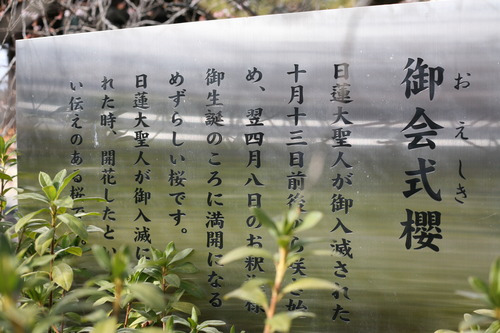 御会式櫻
おえしき
日蓮大聖人が御入滅された
十月十三日前後から咲き始
め、翌四月八日のお釈迦様
御生誕のころに満開になる
めずらしい桜です。
日蓮大聖人が御入滅に
れた時、開花したと
い伝えのある桜で。